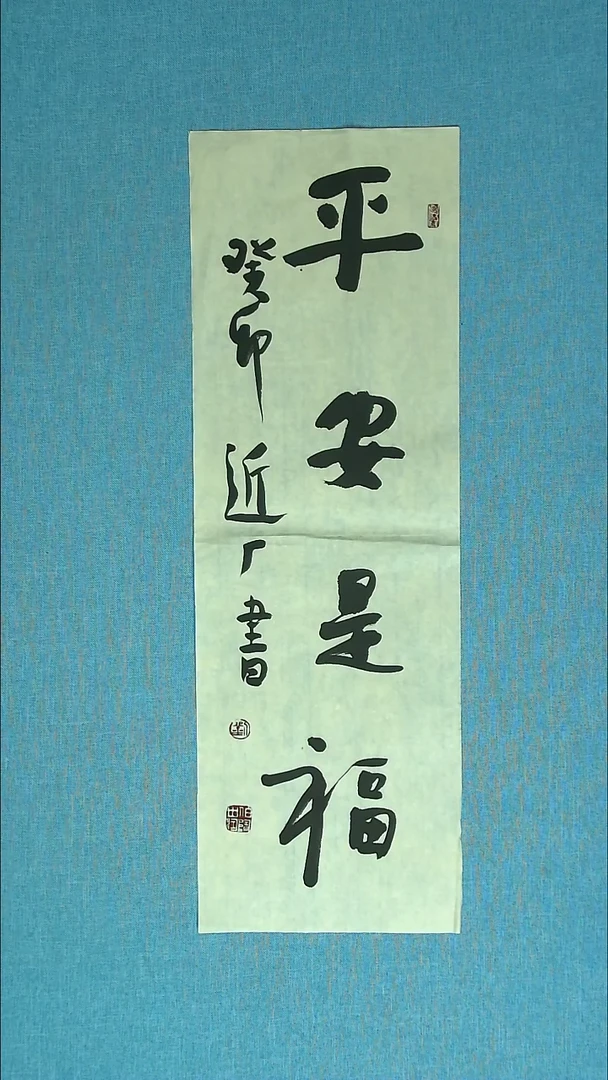 平安是福
癸卯近厂書